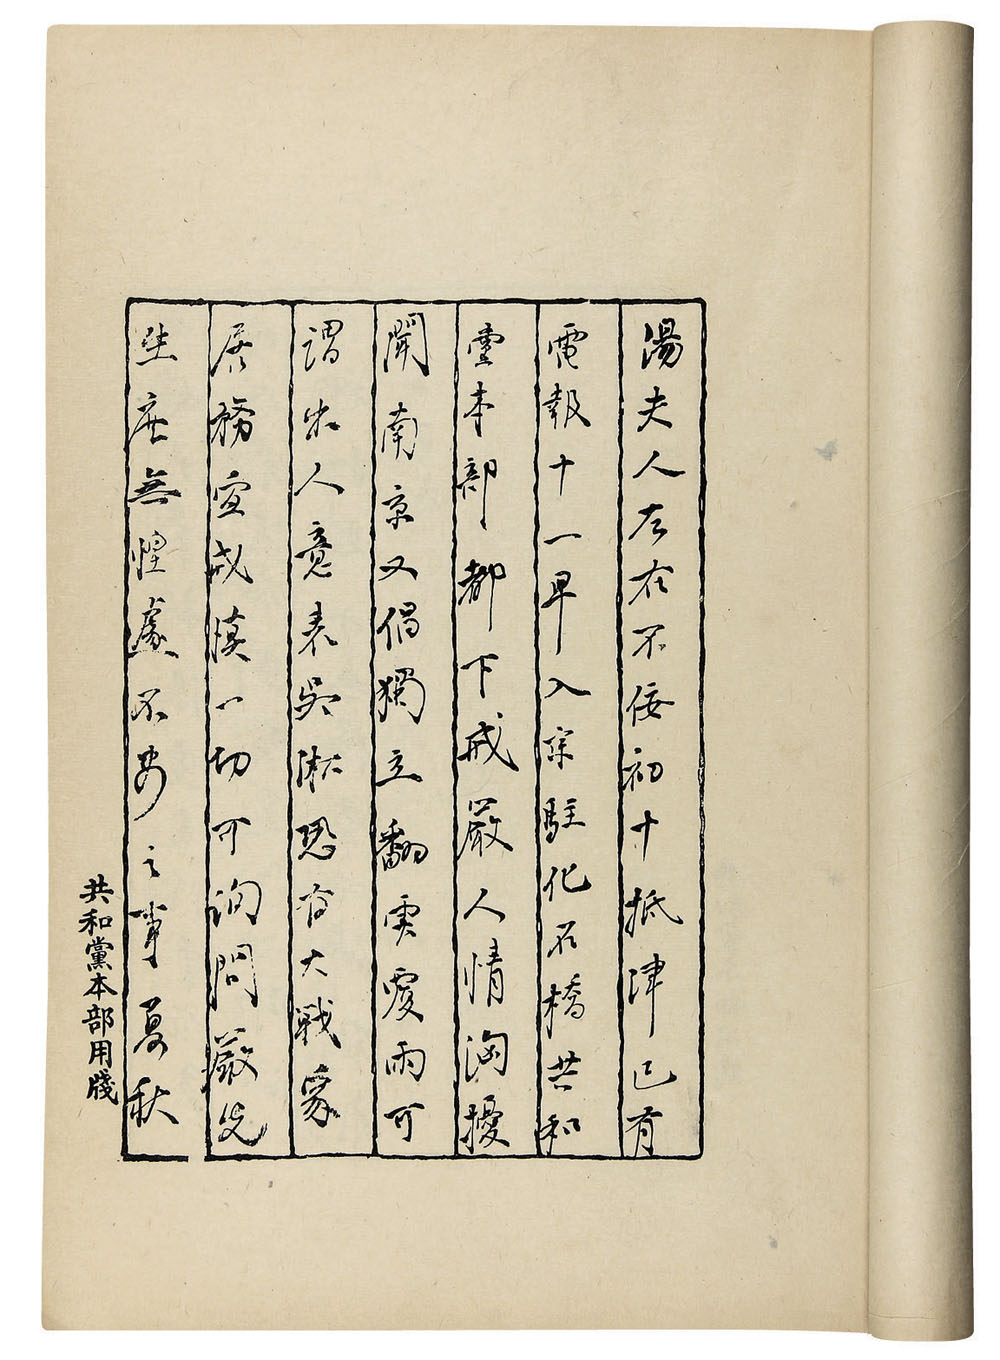 湯夫人左右不佞初十抵津已有
電報十一早入京駐化石橋共和
黨本部都下戒嚴人情洶擾
聞南京又倡獨立翻雲覆雨可
謂出人意表吳淞恐有大戰家
居務宜戒慎一切可詢問嚴先
生庶無惶遽不安之事夏秋
共和黨本部用牋